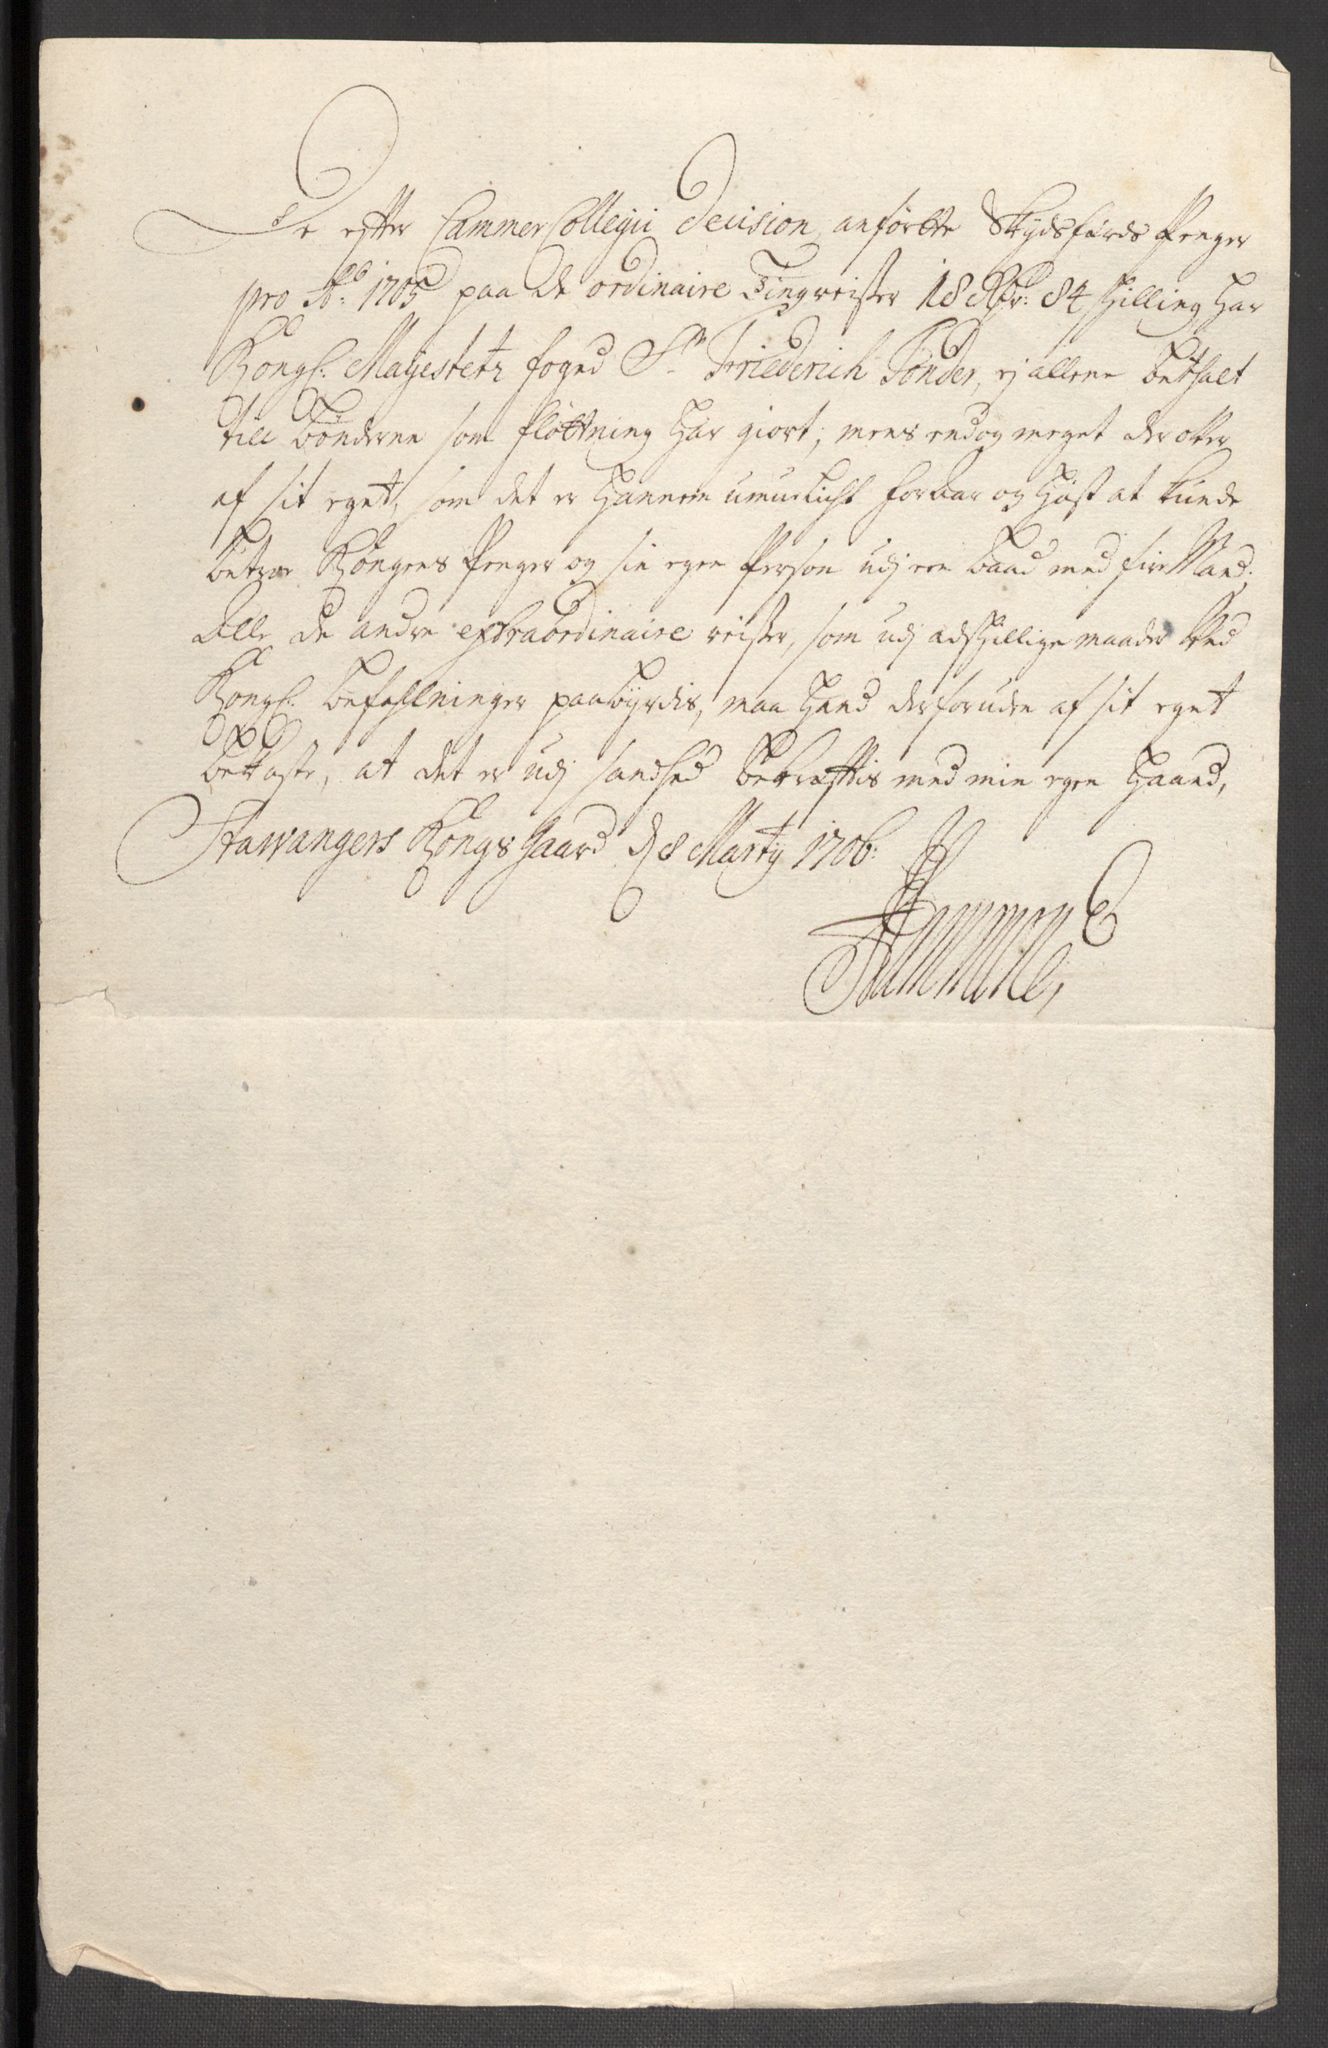 De efter Cammer Collegii Decision, anförtte Skydsfærds Penger
pro Ao: 1705 paa de ordinaire Tingreister 18 Rdr: 84 skilling, har
Kongl: Mayestetz foged Sr Friederich Tönder, ej allene bethalt
till bönderne som flöttning har giort, mens endog meget der ofver
af sit eget, som det er hannem umueligt for vaar og höst at kunde
betroe Kongens Penger og sin egen Person udj een baad med fire Mand,
Alle de andre extraordinaire reister, som udj adskillige maader ved
Kongl: befahlninger paabyrdis, maa hand desforuden af sit eget
bekoste, at det er udj sandhed bekræfftis med min egen haand,
Stawangers KongsGaard d 8 Martij 1706: